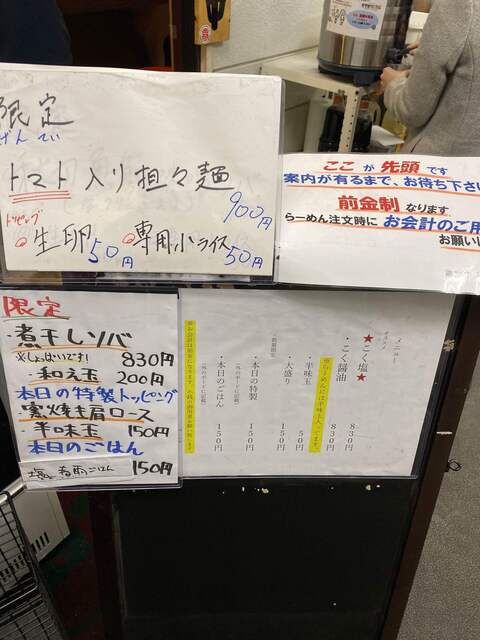 限定
げんてい
トマト入り担々麺
900円
トッピング
生卵50円
専用小ライス50円
ここが先頭です
案内が有るまで、お待ち下さ
前金制なります
らーめん注文時にお会計のご用
お願いし
限定
・煮干しソバ
※しょっぱいです! 830円
・和え玉 200円
本日の特製トッピング
窯焼き肩ロース
・半味玉 150円
本日のごはん
150円
メニュー
★こく塩★ 830円
・こく醤油 830円
※らーめんには半味玉入ってます。
・半味玉 50円
・大盛り 150円
(数量限定)
・本日の特製 150円
(外のボードに記載)
・本日のごはん 150円
(外のボードに記載)